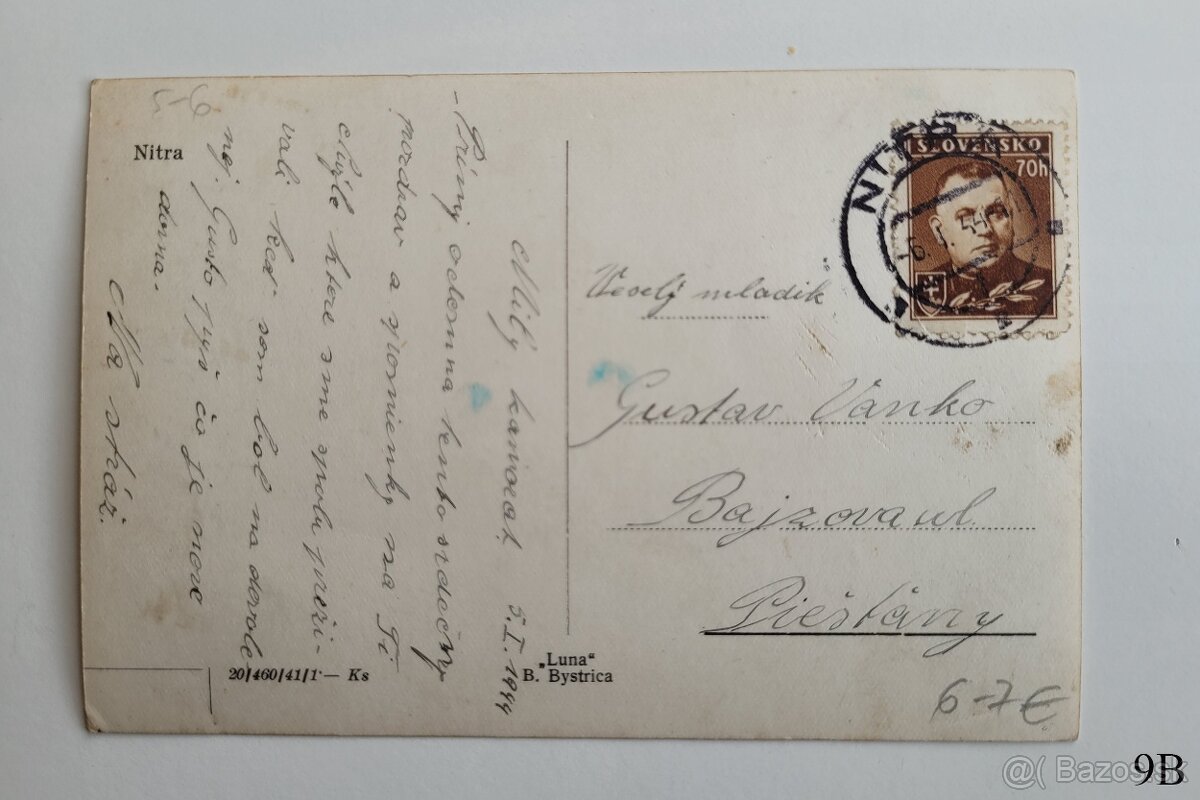 Nitra
Milý kamarát, 5.I.1944
- Prímy odomna tento srdečný
pozdrav a spomienky na Ti
chvíle ktore sme spolu preži-
vali keď som bol na dovole
nej. Gusto
čo je nove
doma.
Na stráž.
20/460/41/1 — Ks
„Luna“
B. Bystrica
SLOVENSKO
70h
NITRA
Veselý mladík
Gustav Vanko
Bajzova ul.
Piešťany
6-7€
@( Bazos.sk
9B